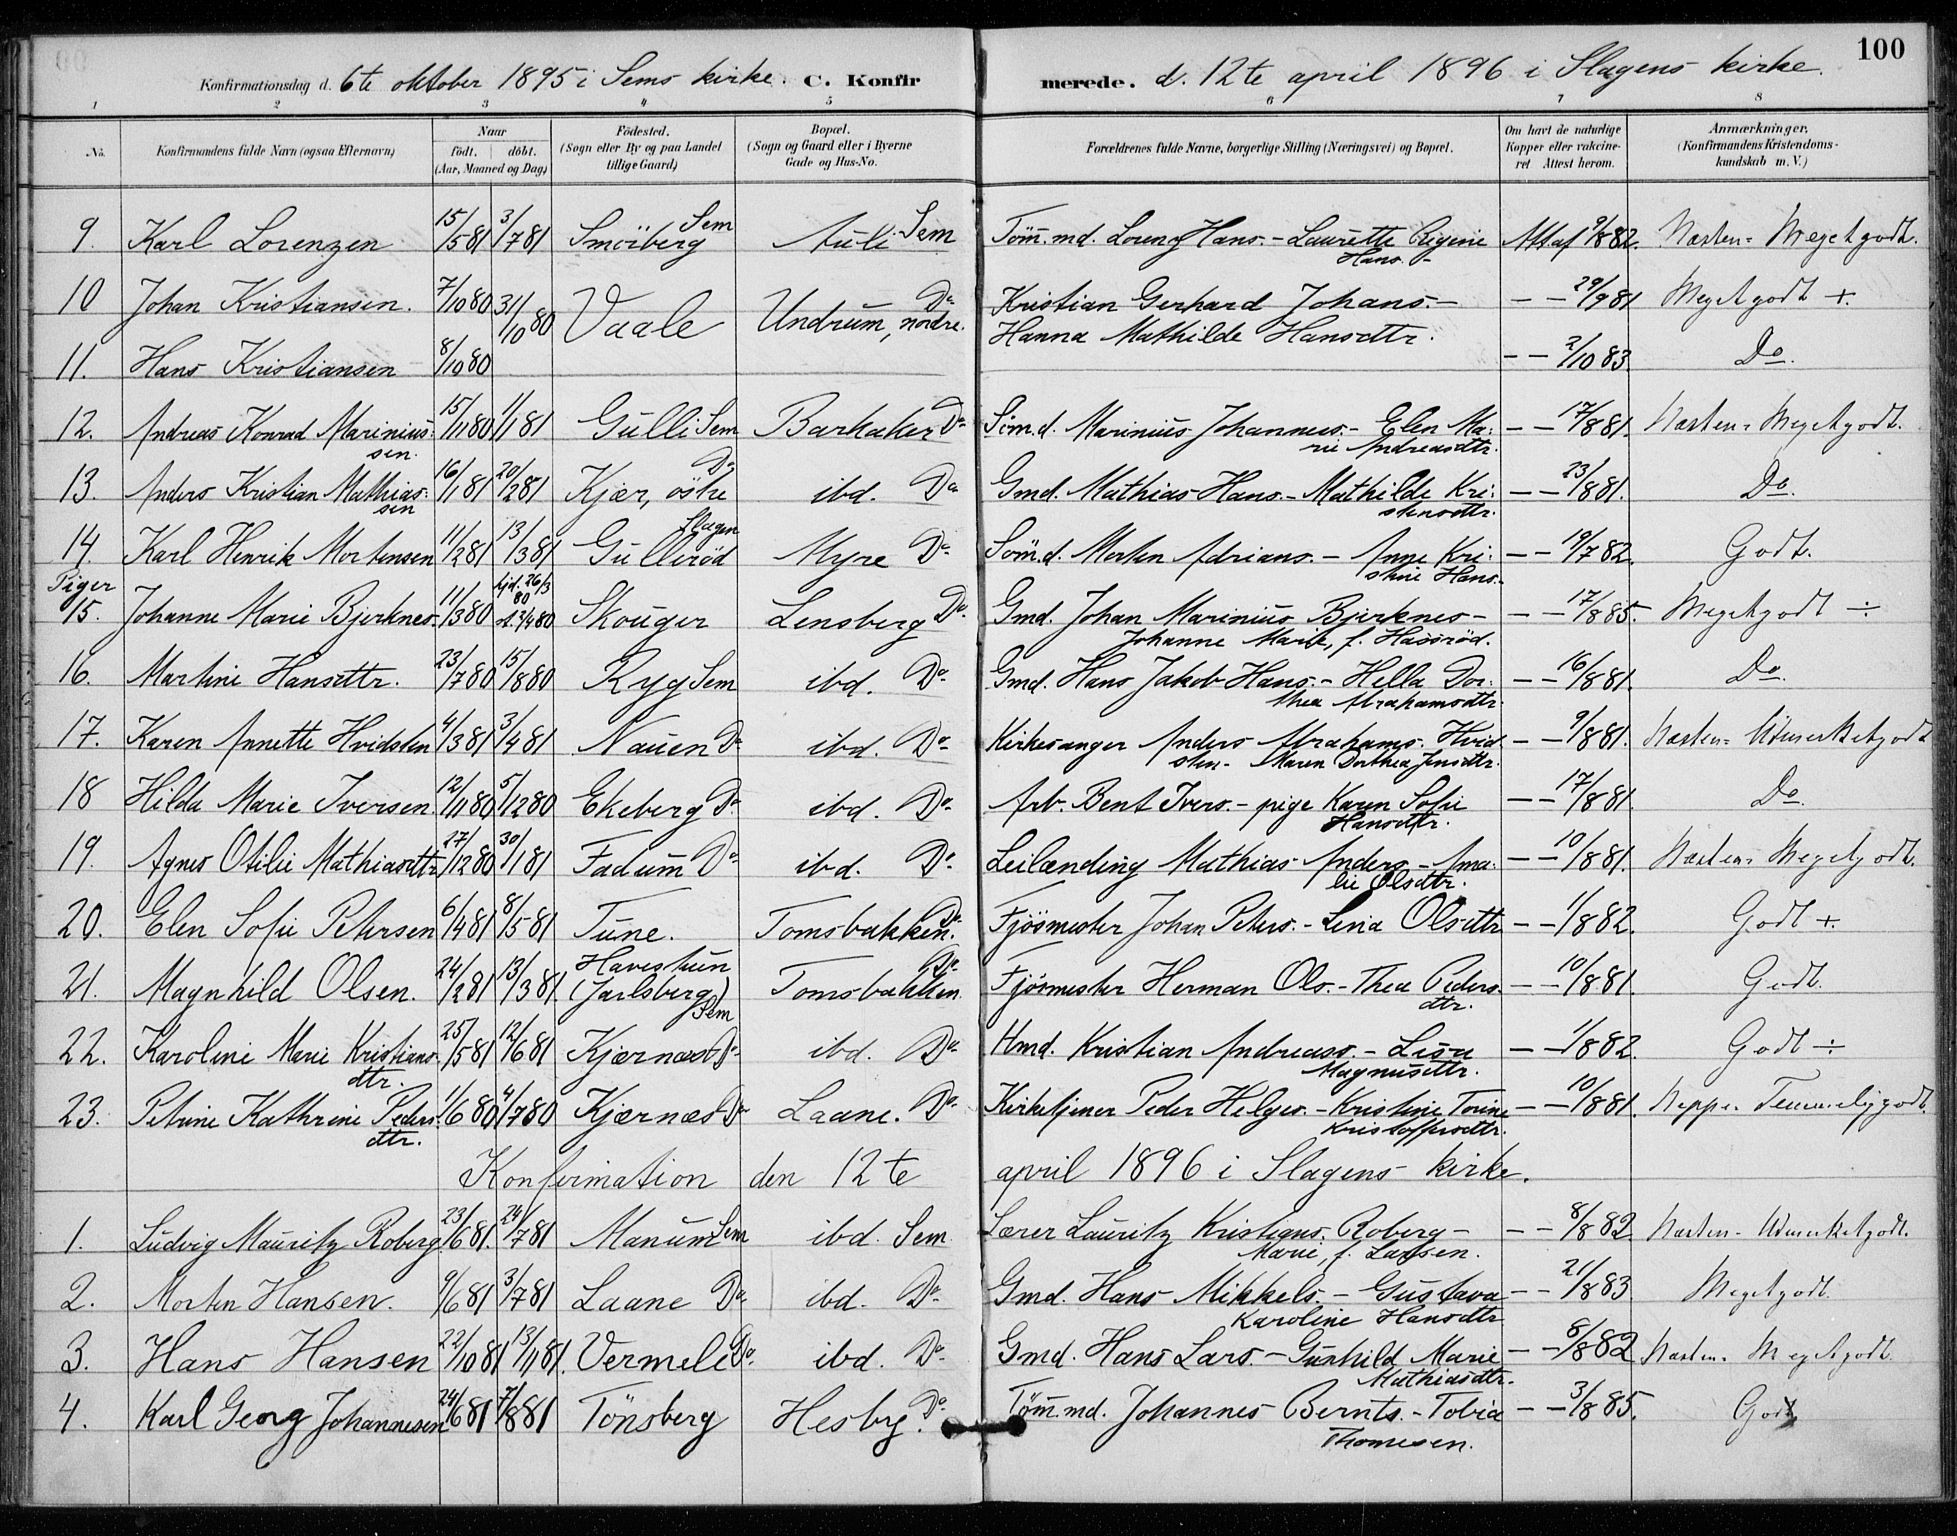 100
Konfirmationsdag d. 6te oktober 1895 i Sems kirke. C. Konfirmerede. d. 12te april 1896 i Slagens kirke.
1 2 3 4 5 6 7 8
No. Konfirmandens fulde Navn (ogsaa Efternavn) Naar født. døbt. (Aar, Maaned og Dag) Fødested. (Sogn eller By og paa Landet tillige Gaard) Bopæl. (Sogn og Gaard eller i Byerne Gade og Hus-No. Forældrenes fulde Navne, borgerlige Stilling (Næringsvei) og Bopæl. Om havt de naturlige Kopper eller vakcineret Attest herom. Anmærkninger. (Konfirmandens Kristendomskundskab m. V.)
9. Karl Lorenzen 15/5 81 3/7 81 Smöiberg Sem Auli Sem Tömmd. Lorenz Hans. - Laurette Eigenie Hans. - Att af 9/8 82. Næsten - Megetgodt.
10 Johan Kristiansen. 7/10 80 31/10 80 Vaale Undrum, nordre. Do Kristian Gerhard Johans. - Hanna Mathilde Hansdtr. - - 29/9 81 Megetgodt +.
11. Hans Kristiansen 8/10 80 - - 2/10 83. Do.
12. Andreas Konrad Mariniussen. 15/11 80 1/1 81 Gulli Sem Barkaker Do Söm.d. Marinius Johannes. - Elen Marie Andreasdtr. - - 17/8 81. Næsten - Megetgodt.
13. Anders Kristian Mathiassen 16/1 81 20/2 81 Kjær, östre Do ibd. Do Gmd. Mathias Hans. - Mathilde Kristensdtr. - - 23/8 81. Do.
14. Karl Henrik Mortensen 11/2 81 13/3 81 Gulleröd Slagen Myre Do Söm.d. Morten Adrians. - Anne Kristine Hans. - - 19/7 82. Godt.
Piger
15. Johanne Marie Bjerknes 11/3 80 hjd. 26/3 80 Skouger Lensberg Do. Gmd. Johan Marinius Bjerknes - Johanne Marie, f. Hassröd. - - 17/8 85. Megetgodt ÷
16. Martine Hansdtr. 23/7 80 15/8 80 Ryg Sem ibd. Do Gmd. Hans Jakob Hans. - Hella Dorthea Abrahamsdtr. - - 16/8 81. Do
17. Karen Annette Hvidsten 4/3 81 3/4 81 Nauen Do ibd. Do Kirkesanger Anders Abrahams. Hvidsten - Maren Dorthea Jensdtr. - - 9/8 81. Næsten - Udmerketgodt
18 Hilda Marie Iversen. 12/11 80 5/12 80 Ekeberg Do ibd. Do Arb. Bent Ivers. - pige Karen Sofie Hansdtr. - - 17/8 81. Do.
19. Agnes Otilie Mathiasdtr 27/12 80 30/1 81 Fadum Do ibd. Do. Leilænding Mathias Anders. - Amalie Olsdtr. - - 10/8 81. Næsten - Megetgodt.
20. Elen Sofie Petersen 6/4 81 8/5 81 Tune. Tomsbakken. Do. Fjösmester Johan Peters. - Lena Olsdtr - - 1/8 82. Godt +.
21. Magnhild Olsen. 24/2 81 13/3 81. Havestuen (Jarlsberg) Sem Tomsbakken Do. Fjösmester Herman Ols. - Thea Pedersdtr. - - 10/8 81. Godt.
22. Karoline Marie Kristiansdtr. 25/5 81 12/6 81 Kjærnæs Do ibd. Do Hmd. Kristian Andreass. - Lisa Magnusdtr. - - 1/8 82. Godt ÷
23. Petrine Kathrine Pedersdtr. 1/6 80 4/7 80 Kjærnæs Do Laane. Do Kirketjener Peder Helges. - Kristine Torine Kristoffersdtr. - - 10/8 81. Neppe - Temmeliggodt.
Konfirmation den 12te april 1896 i Slagens kirke.
1. Ludvig Mauritz Roberg 23/6 81. 24/7 81 Manum Sem ibd. Sem Lærer Lauritz Kristians. Roberg - Marie, f. Larssen. - - 8/8 82 Næsten - Udmerketgodt.
2. Morten Hansen. 9/6 81 3/7 81 Laane Do ibd. Do Gmd. Hans Mikkels. - Gustava Karoline Hansdtr - - 21/8 83 Megetgodt.
3. Hans Hansen 22/10 81 13/11 81. Vermelid Do. ibd. Do Gmd. Hans Lars. - Gunhild Marie Mathiasdtr. - - 8/8 82 Næsten - Megetgodt.
4. Karl Georg Johannesen 24/6 81 7/8 81 Tönsberg Hesby. Do Tömmd. Johannes Bernts. - Tobia Thomesen. - - 3/8 85. Godt